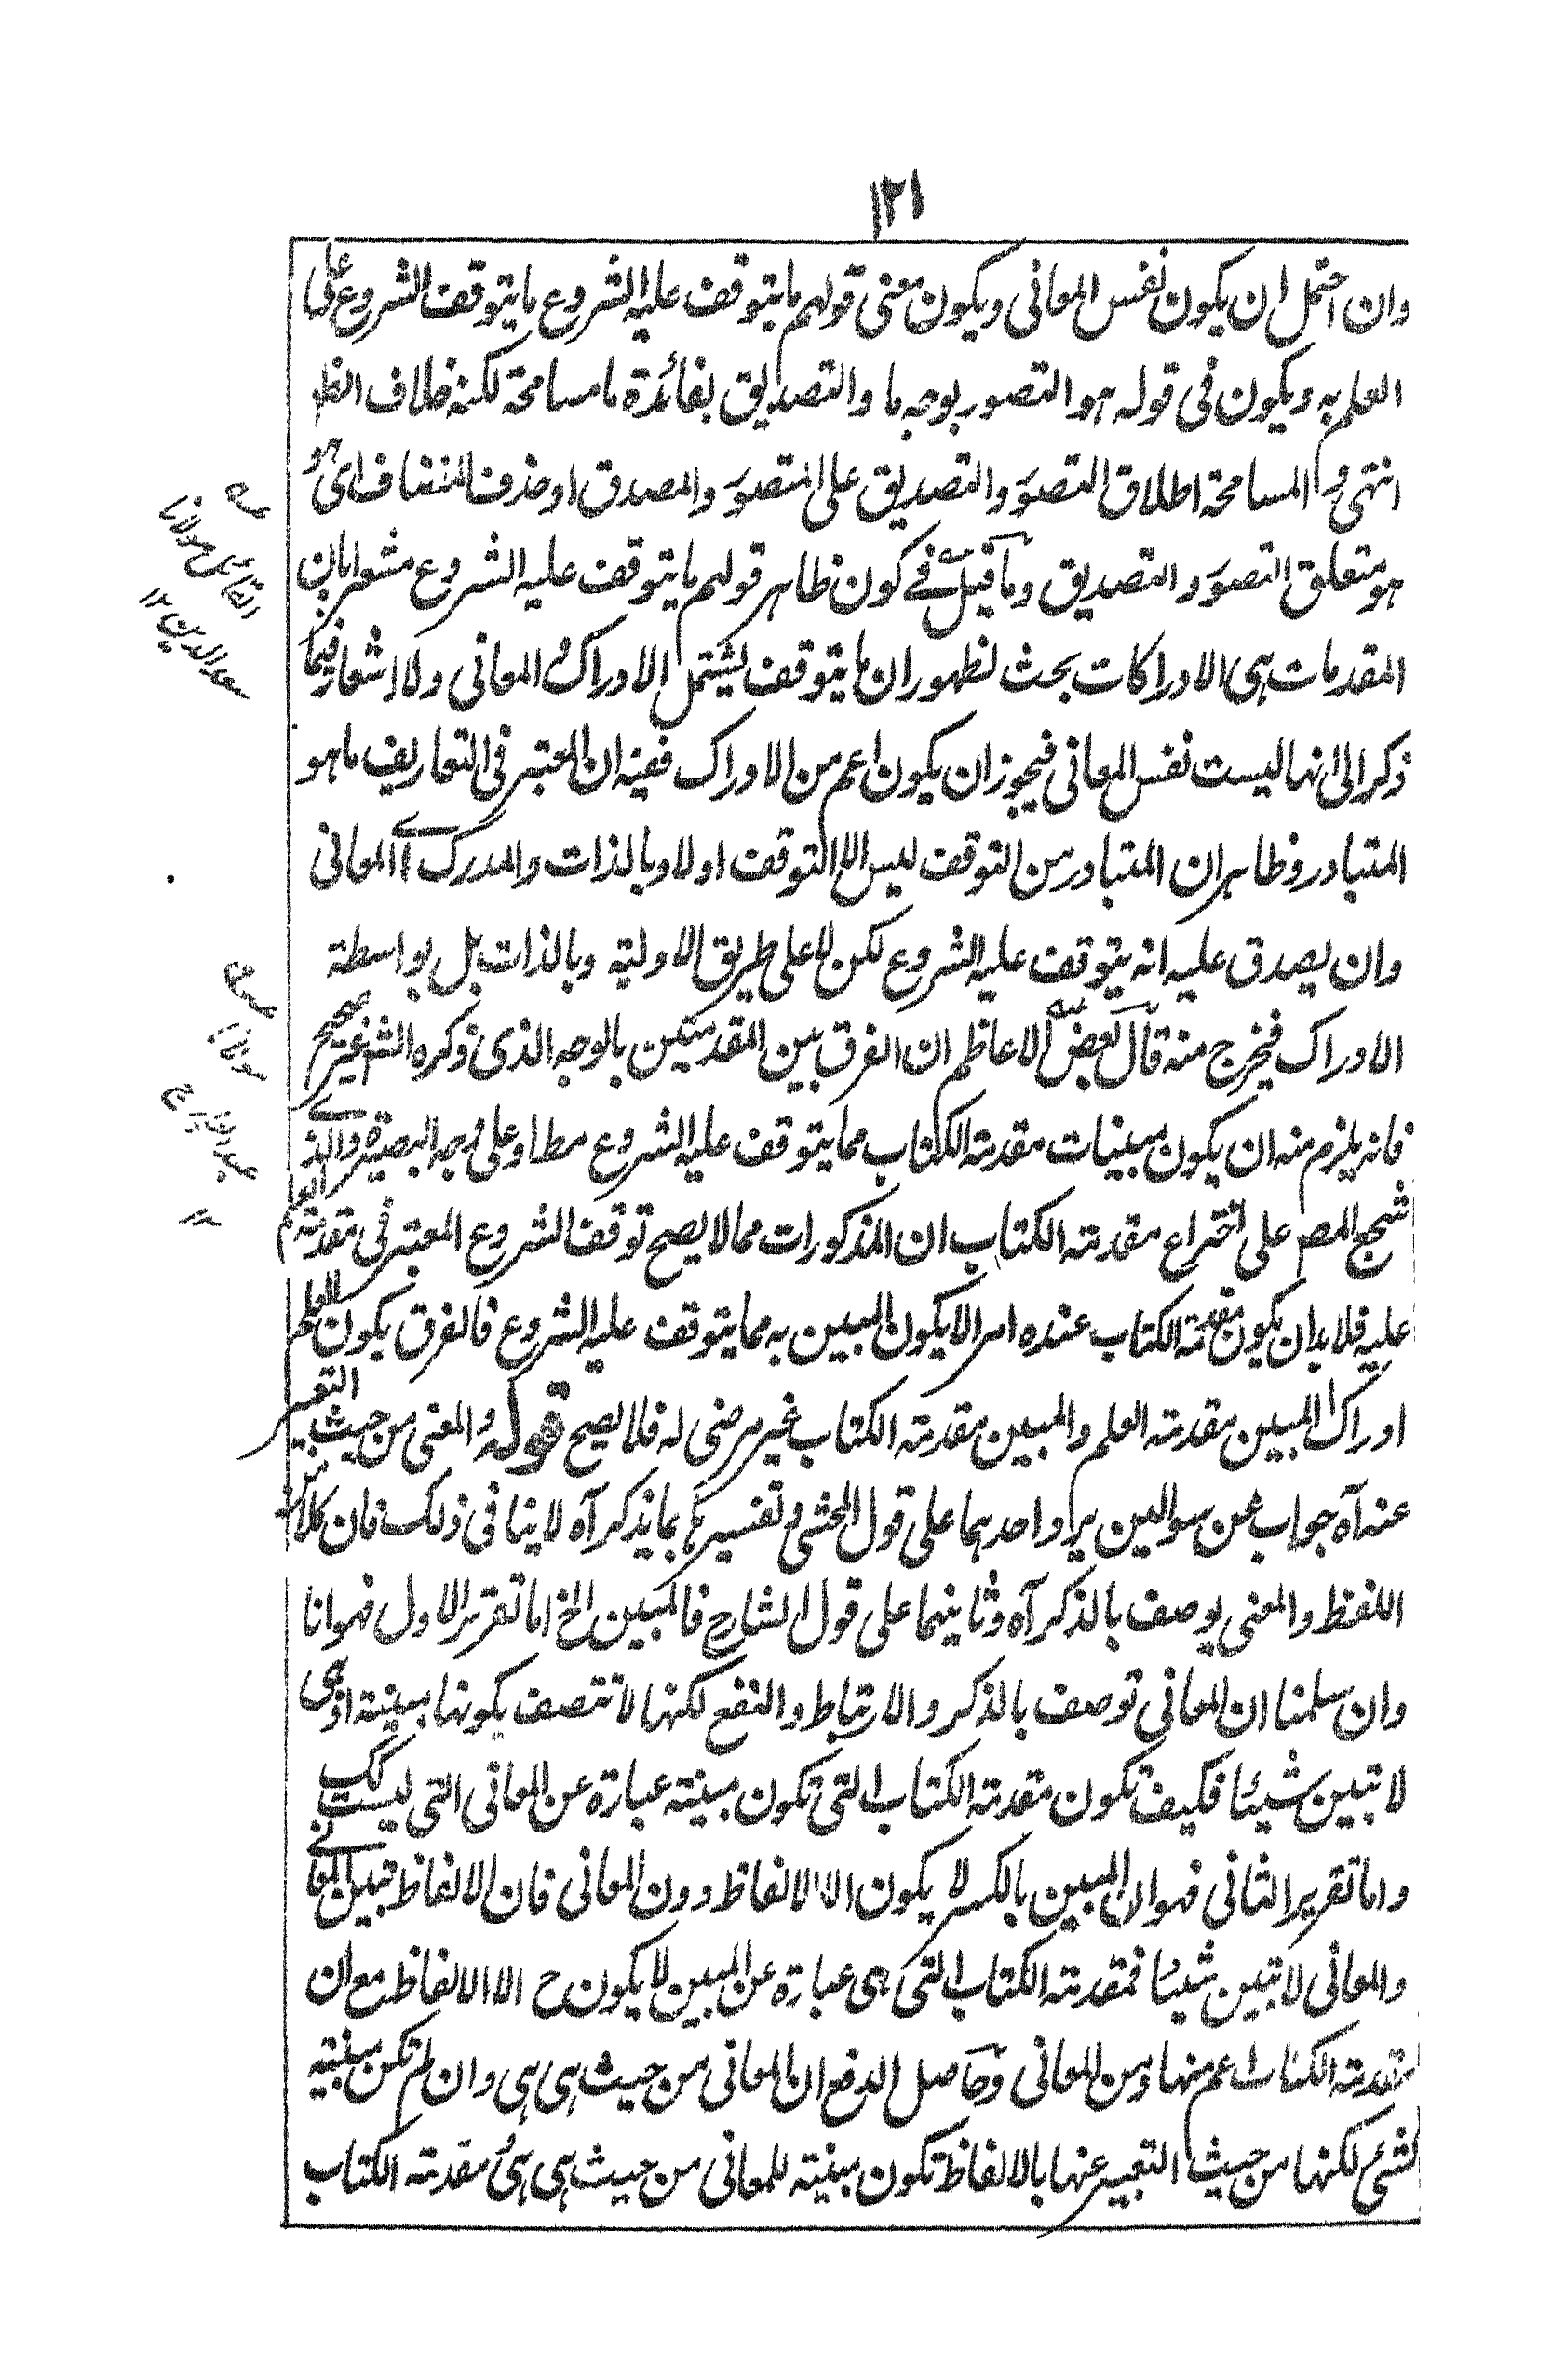 ١٢١
وان احتمل ان يكون نفس المعانى ويكون معنى قولهم ما يتوقف عليه الشروع ما يتوقف الشروع على
العلم به ويكون فى قوله هو التصور بوجه ما والتصديق بفائدة ما مسامحة لكنه خلاف الظ
انتهى والمسامحة اطلاق التصور والتصديق على المتصور والمصدق او حذف المضاف اى هو
هو متعلق التصور والتصديق وما قيل فے كون ظاهر قولهم ما يتوقف عليه الشروع مشعرا بان
المقدمات هى الادراكات بحث لظهور ان ما يتوقف ليشتمل الادراك والمعانى ولا اشعار فيما
ذكر الى انها ليست نفس المعانى فيجوز ان يكون اعم من الادراك ففيه ان المعتبر فى التعاريف ما هو
المتبادر وظاهر ان المتبادر من التوقف ليس الا التوقف اولا وبالذات والمدرك اے المعانى
وان يصدق عليه انه يتوقف عليه الشروع لكن لا على طريق الاولية وبالذات بل بواسطة
الادراك فيخرج منه قال بعض الاعاظم ان الفرق بين المقدمتين بالوجه الذى ذكره الش غير صحيح
فانه يلزم منه ان يكون مبينات مقدمة الكتاب مما يتوقف عليه الشروع مطا وعلى وجه البصيرة والذے
شجع المصـ على اختراع مقدمة الكتاب ان المذكورات مما لا يصح توقف الشروع المعتبر فى مقدمة العلم
عليه فلابد ان يكون مقدمة الكتاب عنده امرا لا يكون المبين به مما يتوقف عليه الشروع فالفرق يكون الظ
ادراك المبين مقدمة العلم والمبين مقدمة الكتاب غير مرضى له فلا يصح قوله والمعنى من حيث التعبير
عنه آه جواب عن سوالين يرد احدهما على قول المحشى وتفسيرها بما يذكر آه لا ينافى ذلك فان كلا من
اللفظ والمعنى يوصف بالذكر آه وثانيهما على قول الشارح فالمبين الخ اما تقرير الاول فهو انا
وان سلمنا ان المعانى توصف بالذكر والارتباط والنفع لكنها لا تتصف بكونها مبينة اذ هى
لا تبين شيئا فكيف تكون مقدمة الكتاب التى تكون مبينة عبارة عن المعانى التى ليست كك
واما تقرير الثانى فهو ان المبين بالكسر لا يكون الا الالفاظ دون المعانى فان الالفاظ تبين المعانے
والمعانى لا تبين شيئا فمقدمة الكتاب التى هى عبارة عن المبين لا يكون ح الا الالفاظ مع ان
مقدمة الكتاب اعم منها ومن المعانى وحاصل الدفع ان المعانى من حيث هى هى وان لم تكن مبينة
لشئ لكنها من حيث التعبير عنها بالالفاظ تكون مبينة للمعانى من حيث هى هى مقدمة الكتاب
القائل مولانا
سعد الدين ١٢
مولانا
١٢